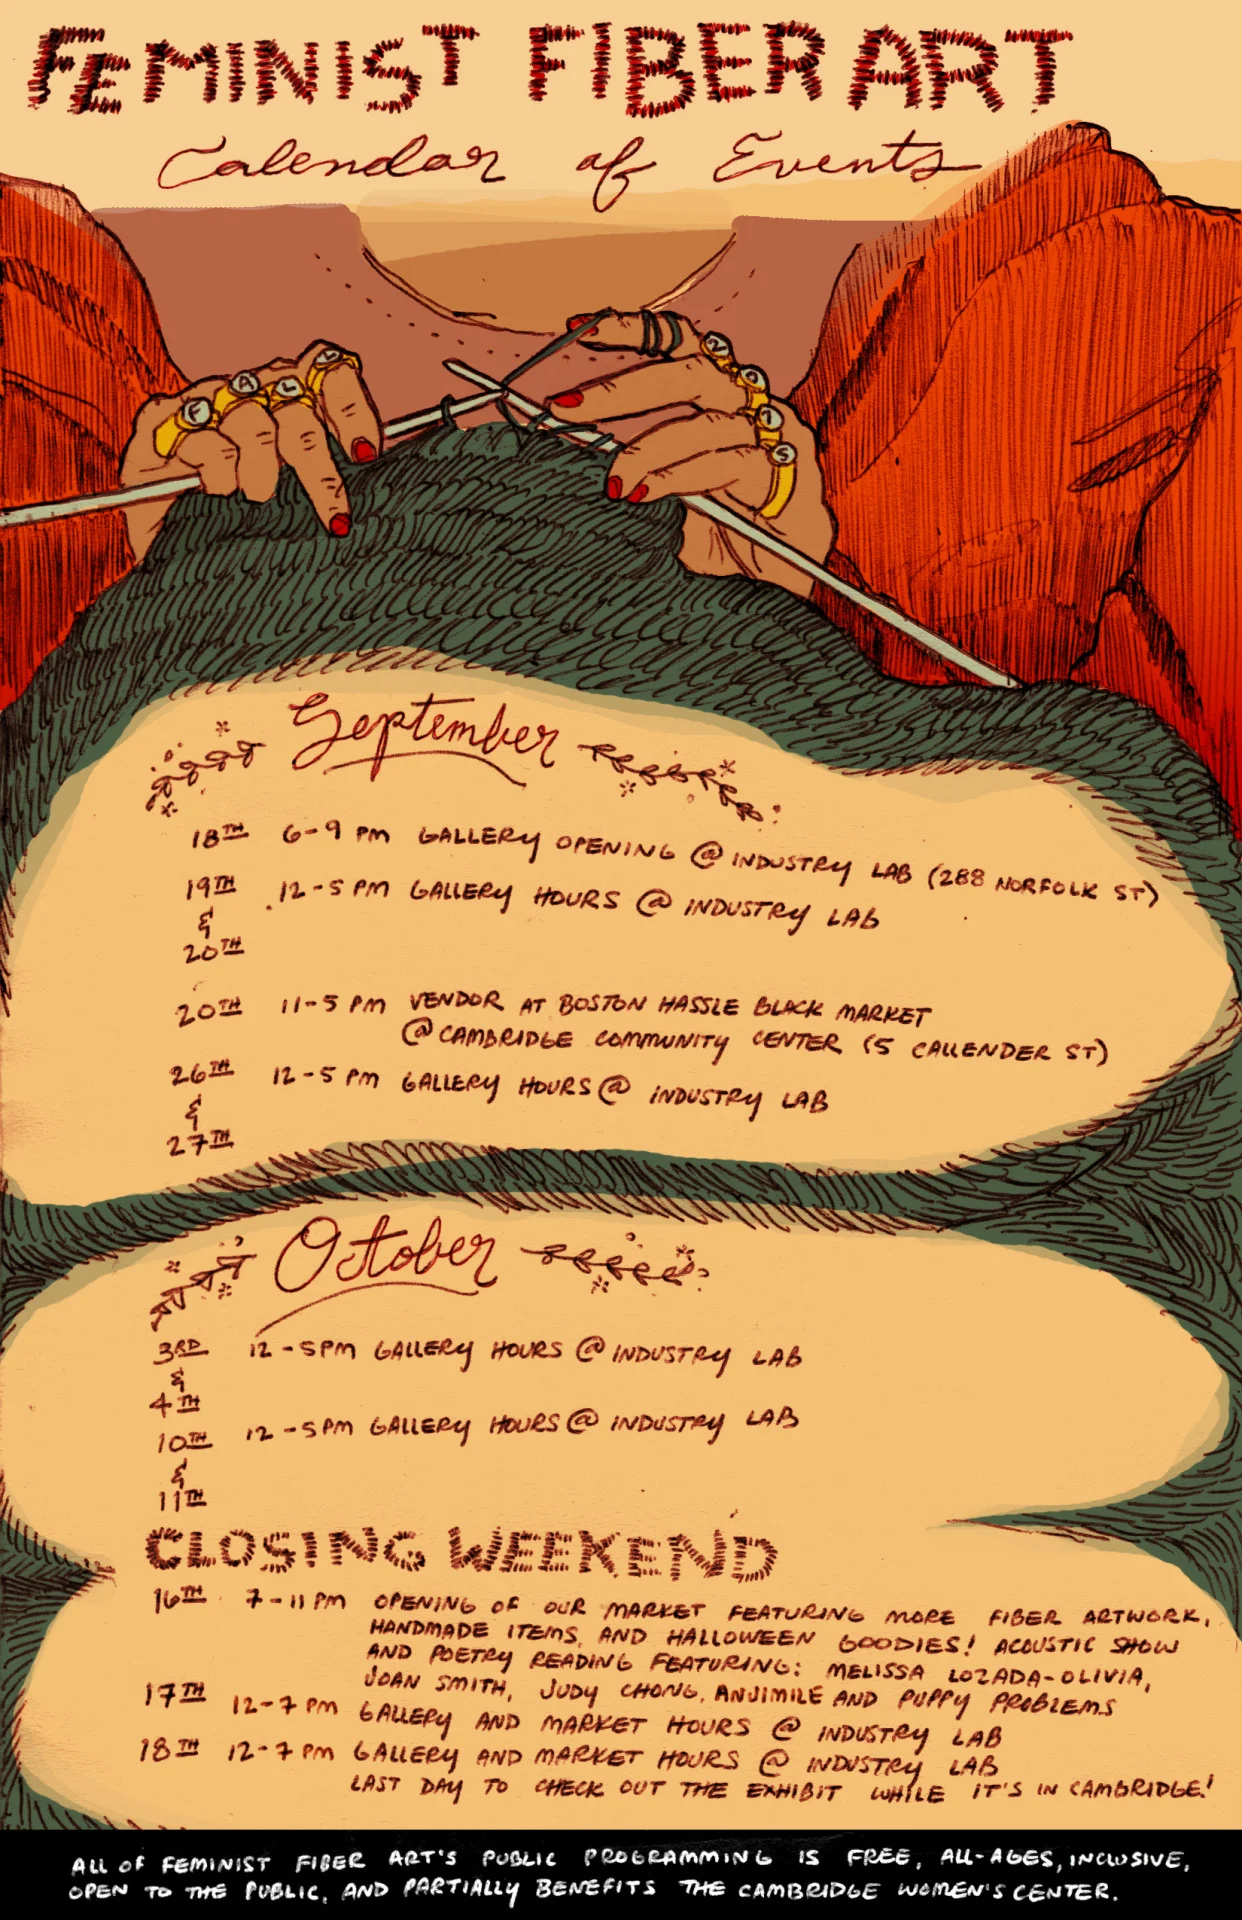 FEMINIST FIBER ART
Calendar of Events
FALL
2015
September
18TH 6-9 PM GALLERY OPENING @ INDUSTRY LAB (288 NORFOLK ST)
19TH 12-5 PM GALLERY HOURS @ INDUSTRY LAB
&
20TH
20TH 11-5 PM VENDOR AT BOSTON HASSLE BLACK MARKET
@ CAMBRIDGE COMMUNITY CENTER (5 CALLENDER ST)
26TH 12-5 PM GALLERY HOURS @ INDUSTRY LAB
&
27TH
October
3RD 12-5PM GALLERY HOURS @ INDUSTRY LAB
&
4TH
10TH 12-5PM GALLERY HOURS @ INDUSTRY LAB
&
11TH
CLOSING WEEKEND
16TH 7-11 PM OPENING OF OUR MARKET FEATURING MORE FIBER ARTWORK,
HANDMADE ITEMS, AND HALLOWEEN GOODIES! ACOUSTIC SHOW
AND POETRY READING FEATURING: MELISSA LOZADA-OLIVIA,
JOAN SMITH, JUDY CHONG, ANJIMILE AND PUPPY PROBLEMS
17TH 12-7 PM GALLERY AND MARKET HOURS @ INDUSTRY LAB
18TH 12-7 PM GALLERY AND MARKET HOURS @ INDUSTRY LAB
LAST DAY TO CHECK OUT THE EXHIBIT WHILE IT'S IN CAMBRIDGE!
ALL OF FEMINIST FIBER ART'S PUBLIC PROGRAMMING IS FREE, ALL-AGES, INCLUSIVE,
OPEN TO THE PUBLIC, AND PARTIALLY BENEFITS THE CAMBRIDGE WOMEN'S CENTER.